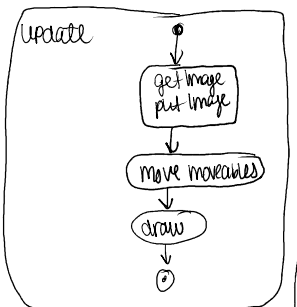 update
getImage
putImage
move moveables
draw